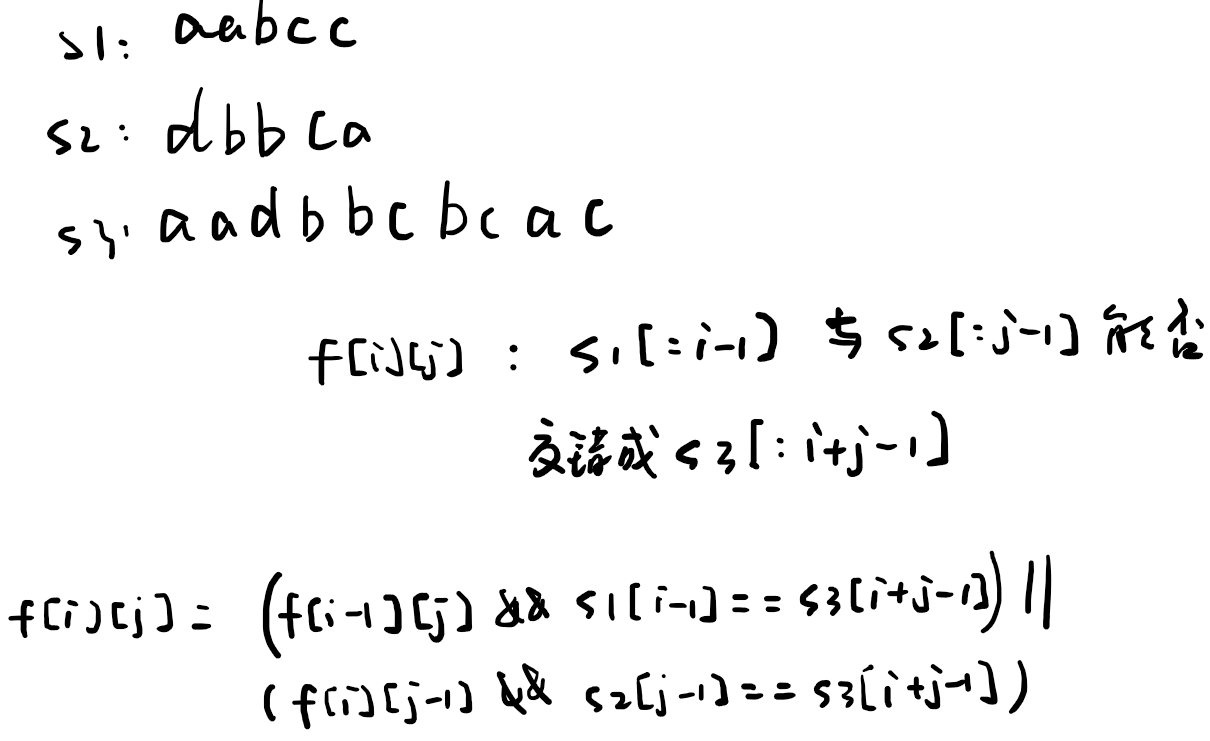 s1: aabcc
s2: dbbca
s3: aadbbcbcac
f[i][j] : s1[:i-1] 与 s2[:j-1] 能否
交错成 s3[:i+j-1]
f[i][j] = (f[i-1][j] && s1[i-1] == s3[i+j-1]) ||
(f[i][j-1] && s2[j-1] == s3[i+j-1])